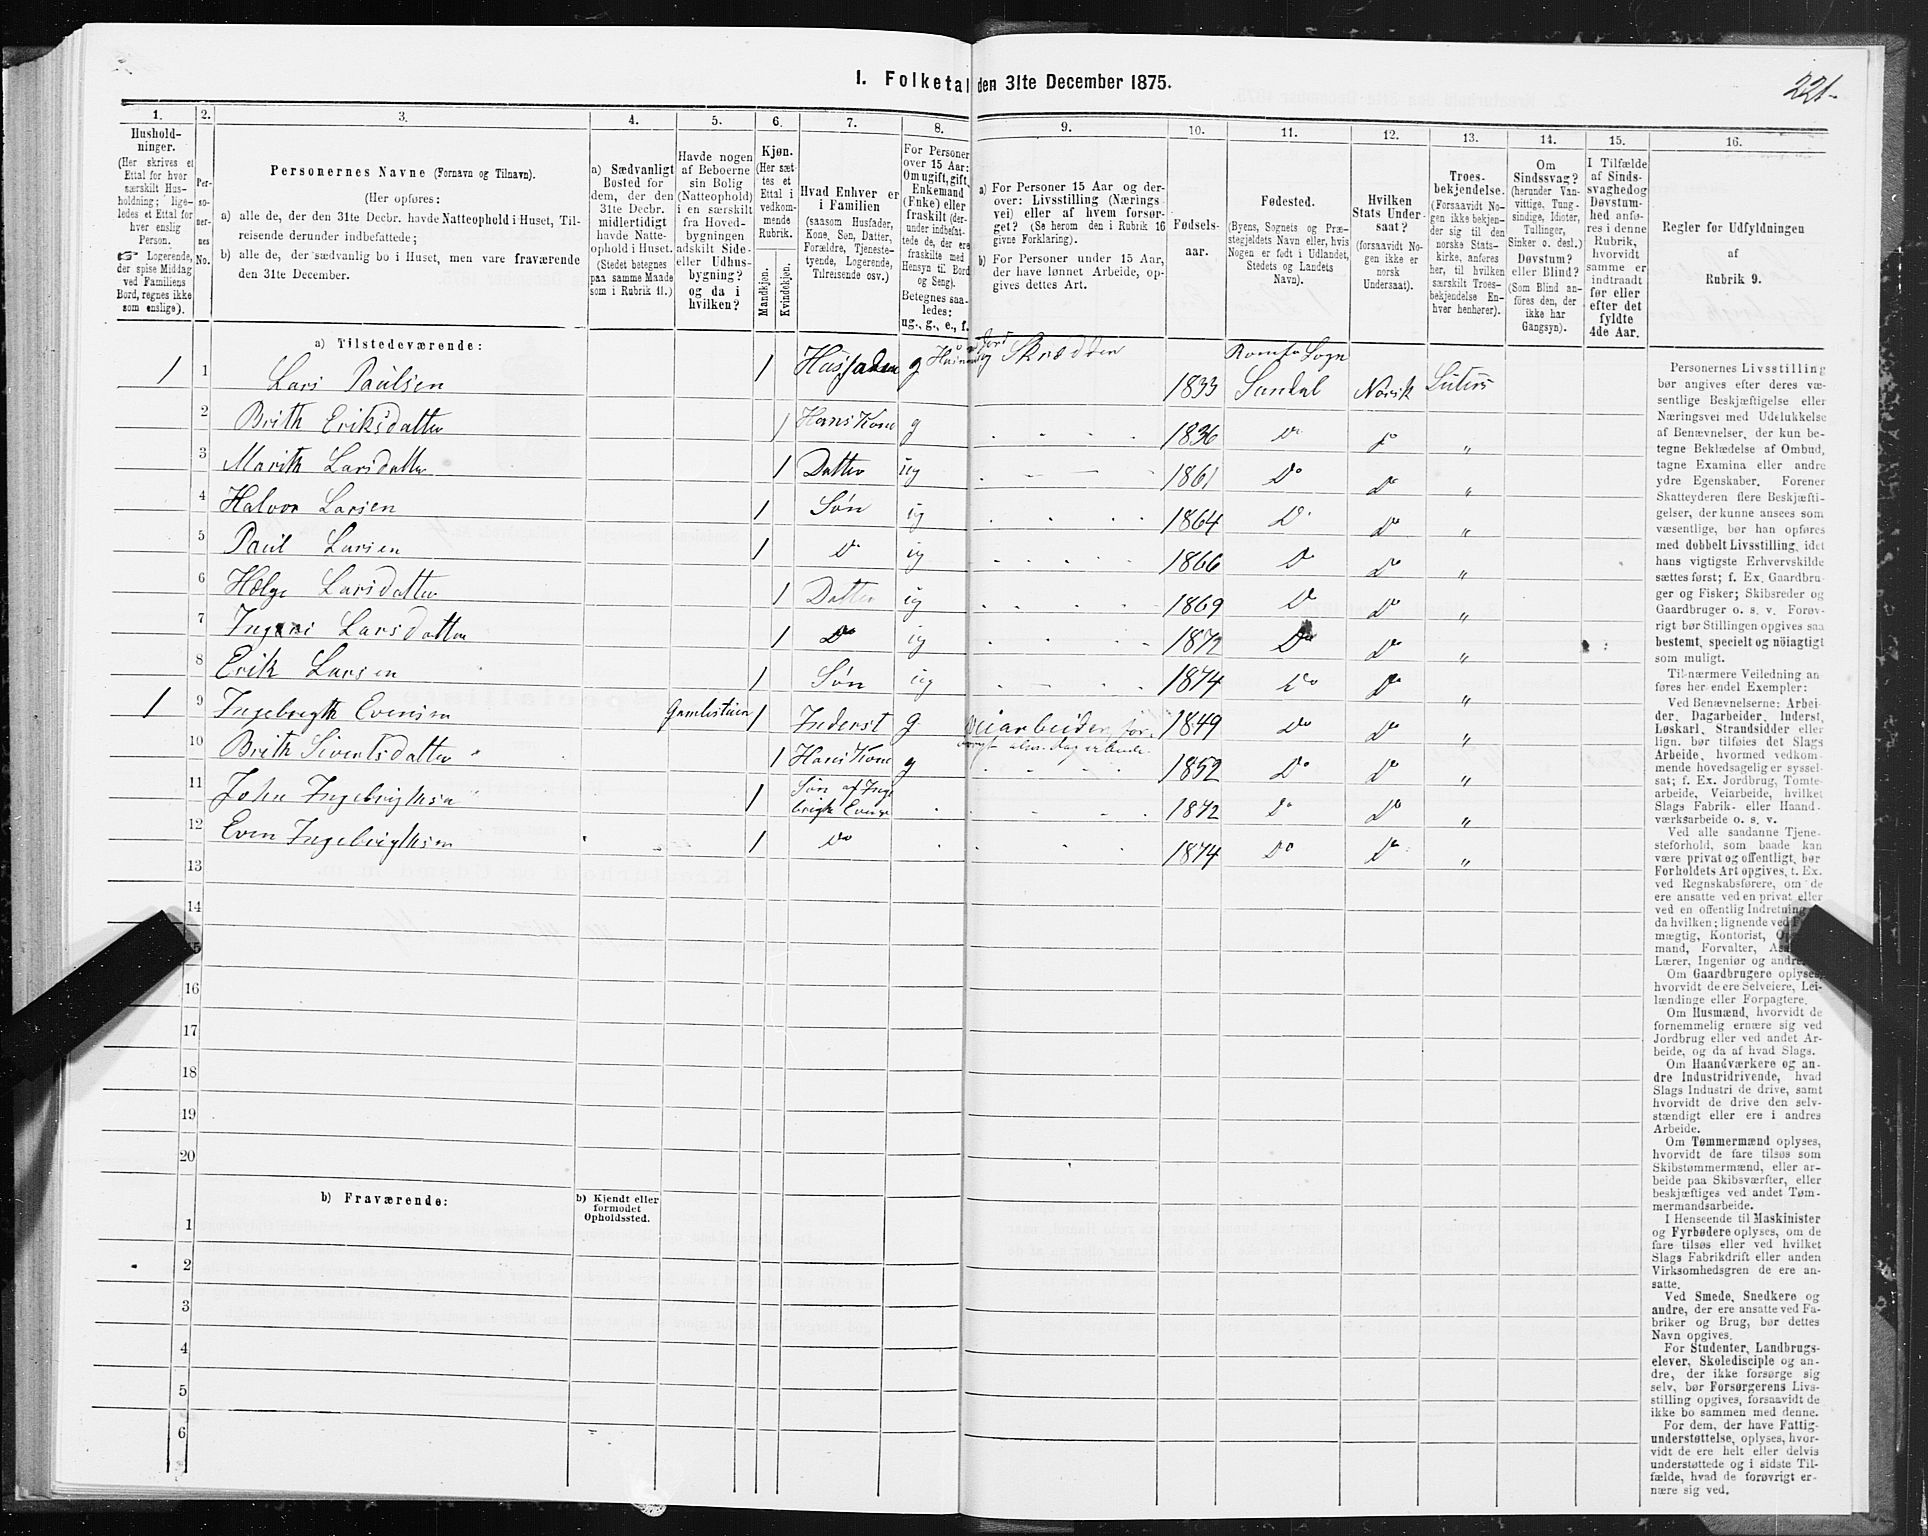 221.
I. Folketal den 31te December 1875.
1. 2. 3. 4. 5. 6. 7. 8. 9. 10. 11. 12. 13. 14. 15. 16.
Hushold-
ninger.
(Her skrives et
Ettal for hver
særskilt Hus-
holdning; lige-
ledes et Ettal for
hver enslig
Person.
☞ Logerende,
der spise Middag
ved Familiens
Bord, regnes ikke
som enslige).
Per-
so-
ner-
nes
No.
Personernes Navne (Fornavn og Tilnavn).
(Her opføres:
a) alle de, der den 31te Decbr. havde Natteophold i Huset, Til-
reisende derunder indbefattede;
b) alle de, der sædvanlig bo i Huset, men vare fraværende
den 31te December.
a) Sædvanligt
Bosted for
dem, der den
31te Decbr.
midlertidigt
havde Natte-
ophold i Huset.
(Stedet betegnes
paa samme Maade
som i Rubrik 11.)
Havde nogen
af Beboerne
sin Bolig
(Natteophold)
i en særskilt
fra Hoved-
bygningen
adskilt Side-
eller Udhus-
bygning?
og da i
hvilken?
Kjøn.
(Her sæt-
tes et
Ettal i
vedkom-
mende
Rubrik.
Mandkjøn.
Kvindekjøn.
Hvad Enhver er
i Familien
(saasom Husfader,
Kone, Søn, Datter,
Forældre, Tjeneste-
tyende, Logerende,
Tilreisende osv.)
For Personer
over 15 Aar:
Om ugift, gift,
Enkemand
(Enke) eller
fraskilt (der-
under indbefat-
tede de, der ere
fraskilte med
Hensyn til Bord
og Seng).
Betegnes saa-
ledes:
ug., g., e., f.
a) For Personer 15 Aar og der-
over: Livsstilling (Nærings-
vei) eller af hvem forsør-
get? (Se herom den i Rubrik 16
givne Forklaring).
b) For Personer under 15 Aar,
der have lønnet Arbeide, op-
gives dettes Art.
Fødsels-
aar.
Fødested.
(Byens, Sognets og Præ-
stegjeldets Navn eller, hvis
Nogen er født i Udlandet,
Stedets og Landets
Navn).
Hvilken
Stats Under-
saat?
(forsaavidt No-
gen ikke er
norsk
Undersaat).
Troes-
bekjendelse.
(Forsaavidt No-
gen ikke bekjen-
der sig til den
norske Stats-
kirke, anføres
her, til hvilken
særskilt Troes-
bekjendelse En-
hver henhører).
Om
Sindssvag?
(herunder Van-
vittige, Tung-
sindige, Idioter,
Tullinger,
Sinker o. desl.)
Døvstum?
eller Blind?
(Som Blind an-
føres den, der
ikke har
Gangsyn).
I Tilfælde
af Sinds-
svaghed og
Døvstum-
hed anfø-
res i denne
Rubrik,
hvorvidt
samme er
indtraadt
før eller
efter det
fyldte
4de Aar.
Regler for Udfyldningen
af
Rubrik 9.
a) Tilstedeværende:
1 1 Lars Paulsen 1 Husfader g Skrædder 1833 Romfo Sogn Sundal Norsk Luters
2 Brith Eriksdatter 1 Hans Kone g 1836 Do Do „
3 Marith Larsdatter 1 Datter ug 1861 Do Do „
4 Halvor Larsen 1 Søn ug 1864 Do Do „
5 Paul Larsen 1 Do ug 1866 Do Do „
6 Helge Larsdatter 1 Datter ug 1869 Do Do „
7 Larsdatter 1 Do ug 1872 Do Do „
8 Erik Larsen 1 Søn ug 1874 Do Do „
1 9 Ingebrigth Evensen Gamlestuen 1 Inderst g Veiarbeider for- 1849 Do Do „
10 Brith Sivertsdatter 1 Hans Kone g 1852 Do Do „
11 John Ingebrigtsen 1 Søn af Inge brigth Evense 1872 Do Do „
12 Even Ingebrigtsen 1 Do 1874 Do Do „
13
14
15
16
17
18
19
20
b) Fraværende:
b) Kjendt eller
formodet
Opholdssted.
1
2
3
4
5
6
Personernes Livsstilling
bør angives efter deres væ-
sentlige Beskjæftigelse eller
Næringsvei med Udelukkelse
af Benævnelser, der kun be-
tegne Beklædelse af Ombud,
tagne Examina eller andre
ydre Egenskaber. Forener
Skatteyderen flere Beskjæfti-
gelser, der kunne ansees som
væsentlige, bør han opføres
med dobbelt Livsstilling, idet
hans vigtigste Erhvervskilde
sættes først; f. Ex. Gaardbru-
ger og Fisker; Skibsreder og
Gaardbruger o. s. v. Forøv-
rigt bør Stillingen opgives saa
bestemt, specielt og nøiagtigt
som muligt.
Til nærmere Veiledning an
føres her endel Exempler:
Ved Benævnelserne: Arbei-
der, Dagarbeider, Inderst,
Løskarl, Strandsidder eller
lign. bør tilføies det Slags
Arbeide, hvormed vedkom-
mende hovedsagelig er syssel-
sat; f. Ex. Jordbrug, Tomte-
arbeide, Veiarbeide, hvilket
Slags Fabrik- eller Haand-
værksarbeide o. s. v.
Ved alle saadanne Tjene-
steforhold, som baade kan
være privat og offentligt, bør
Forholdets Art opgives, t. Ex.
ved Regnskabsførere, om de
ere ansatte ved en privat eller
ved en offentlig Indretning og
da hvilken; lignende ved
mægtig, Kontorist,
mand, Forvalter,
Lærer, Ingeniør og andre.
Om Gaardbrugere oplyses,
hvorvidt de ere Selveiere, Lei-
lændinge eller Forpagtere.
Om Husmænd, hvorvidt de
fornemmelig ernære sig ved
Jordbrug eller ved andet Ar-
beide, og da af hvad Slags.
Om Haandværkere og an-
dre Industridrivende, hvad
Slags Industri de drive, samt
hvorvidt de drive den selv-
stændigt eller ere i andres
Arbeide.
Om Tømmermænd oplyses,
hvorvidt de fare tilsøs som
Skibstømmermænd, eller ar-
beide paa Skibsværfter, eller
beskjæftiges ved andet Tøm-
mermandsarbeide.
I Henseende til Maskinister
og Fyrbødere oplyses, om de
fare tilsøs eller ved hvilket
Slags Fabrikdrift eller anden
Virksomhedsgren de ere an-
satte.
Ved Smede, Snedkere og
andre, der ere ansatte ved Fa-
briker og Brug, bør dettes
Navn opgives.
For Studenter, Landbrugs-
elever, Skoledisciple og an-
dre, der ikke forsørge sig
selv, bør Forsørgerens Livs-
stilling opgives, forsaavidt de
ikke bo sammen med denne.
For dem, der have Fattig-
understøttelse, oplyses, hvor-
vidt de ere helt eller delvis
understøttede og i sidste Til-
fælde, hvad de forøvrigt er-
nære sig ved.